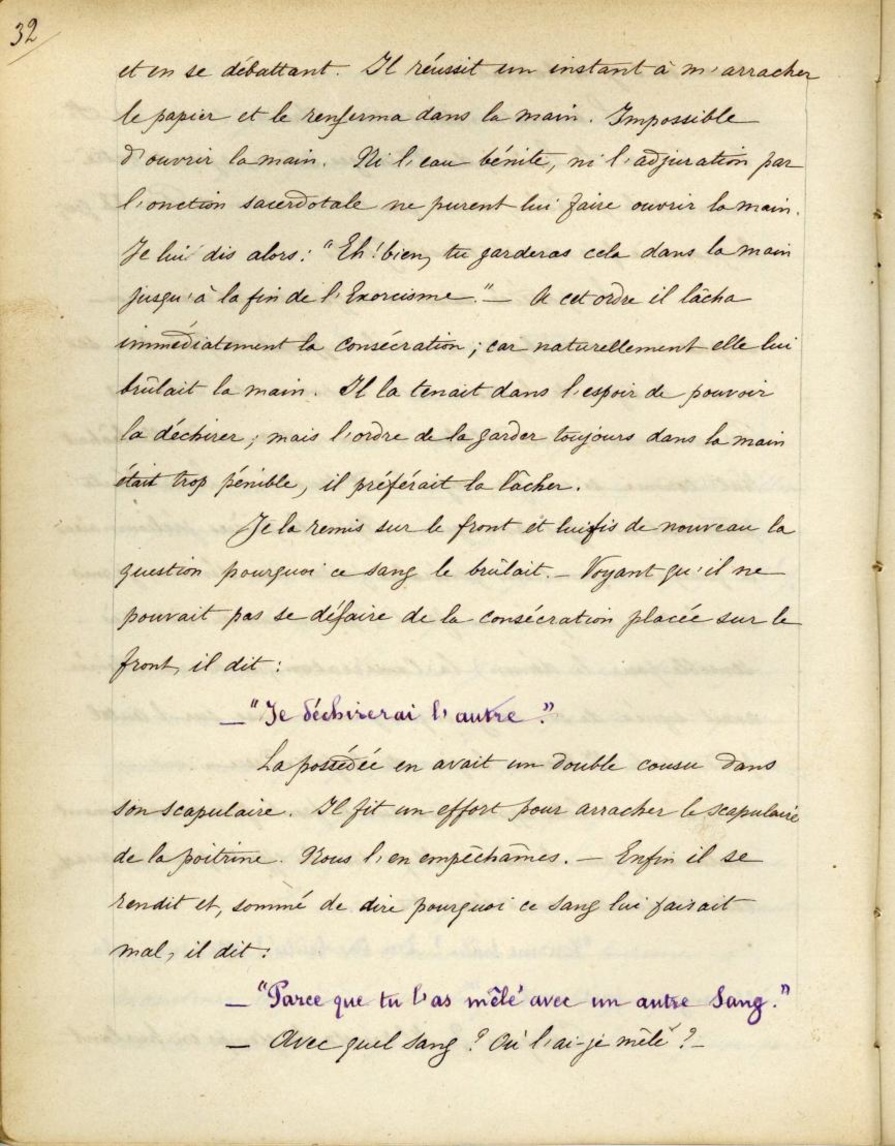 32
et en se débattant. Il réussit un instant à m'arracher
le papier et le renferma dans la main. Impossible
d'ouvrir la main. Ni l'eau bénite, ni l'adjuration par
l'onction sacerdotale ne purent lui faire ouvrir la main.
Je lui dis alors: "Eh! bien, tu garderas cela dans la main
jusqu'à la fin de l'Exorcisme." — A cet ordre il lâcha
immédiatement la consécration; car naturellement elle lui
brûlait la main. Il la tenait dans l'espoir de pouvoir
la déchirer; mais l'ordre de la garder toujours dans la main
était trop pénible, il préférait la lâcher.
Je la remis sur le front et lui fis de nouveau la
question pourquoi ce sang le brûlait. — Voyant qu'il ne
pouvait pas se défaire de la consécration placée sur le
front, il dit:
— "Je déchirerai l'autre."
La possédée en avait un double cousu dans
son scapulaire. Il fit un effort pour arracher le scapulaire
de la poitrine. Nous l'en empêchâmes. — Enfin il se
rendit et, sommé de dire pourquoi ce sang lui faisait
mal, il dit:
— "Parce que tu l'as mêlé avec un autre Sang."
— Avec quel sang? Où l'ai-je mêlé? —